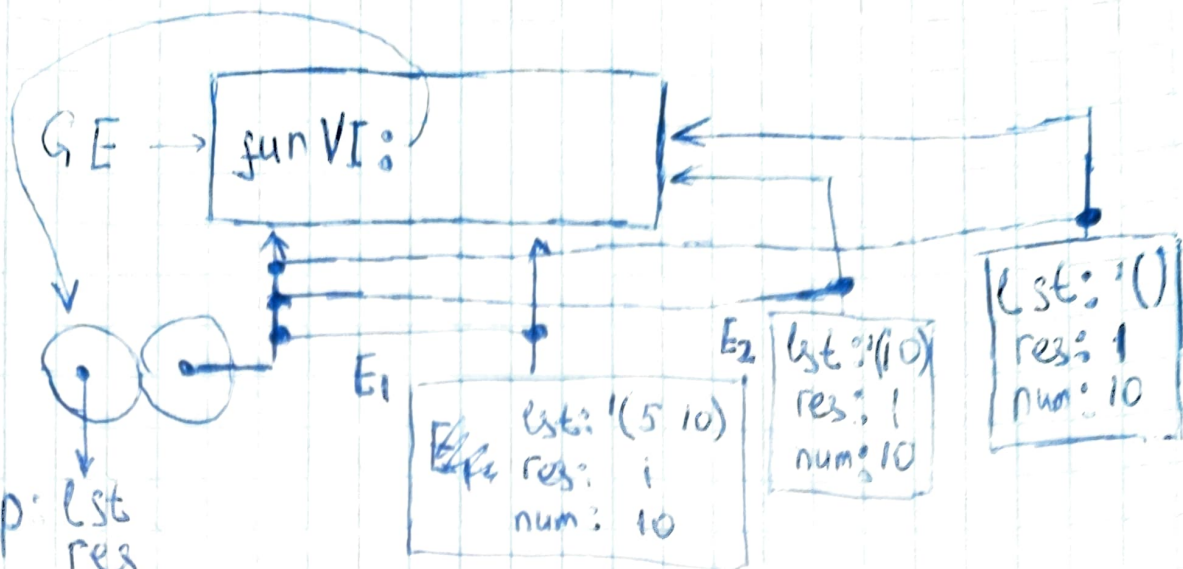 GE
funVI:
E₁
lst: '(5 10)
res: 1
num: 10
E₂
lst: '(10)
res: 1
num: 10
lst: '()
res: 1
num: 10
p: lst
res